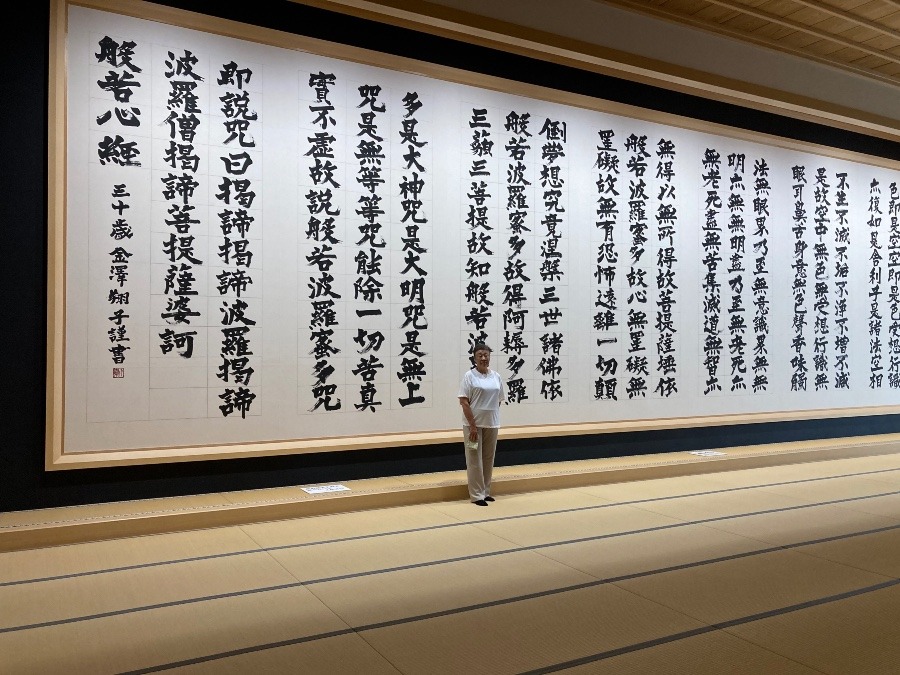 色即是空空即是色受想行識
亦復如是舎利子是諸法空相
不生不滅不垢不淨不増不減
是故空中無色無受想行識無
眼耳鼻舌身意無色聲香味觸
法無眼界乃至無意識界無無
明亦無無明盡乃至無老死亦
無老死盡無苦集滅道無智亦
無得以無所得故菩提薩埵依
般若波羅蜜多故心無罣礙無
罣礙故無有恐怖遠離一切顛
倒夢想究竟涅槃三世諸佛依
般若波羅蜜多故得阿耨多羅
三藐三菩提故知般若波
多是大神咒是大明咒是無上
咒是無等等咒能除一切苦真
實不虛故説般若波羅蜜多咒
即説咒曰揭諦揭諦波羅揭諦
波羅僧揭諦菩提薩婆訶
般若心経 三十歳 金澤翔子謹書